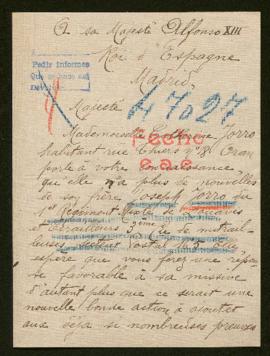 A sa Majesté Alfonso XIII
Roi d'Espagne
Madrid
Pedir Informes
Que se hace así
47027
Majesté
Mademoiselle Jorro
habitant rue n° 18 Oran
Fecho
porte à votre connaissance
que elle n'a plus de nouvelles
de son frère Joseph Jorro du
1er régiment Mixte de Zouaves
et Tirailleurs de mitrail-
leuses secteur postal
espère que vous ferez une répon-
se favorable à sa missive
d'autant plus que ce serait une
nouvelle bonne action à ajouter
aux déjà si nombreuses preuves